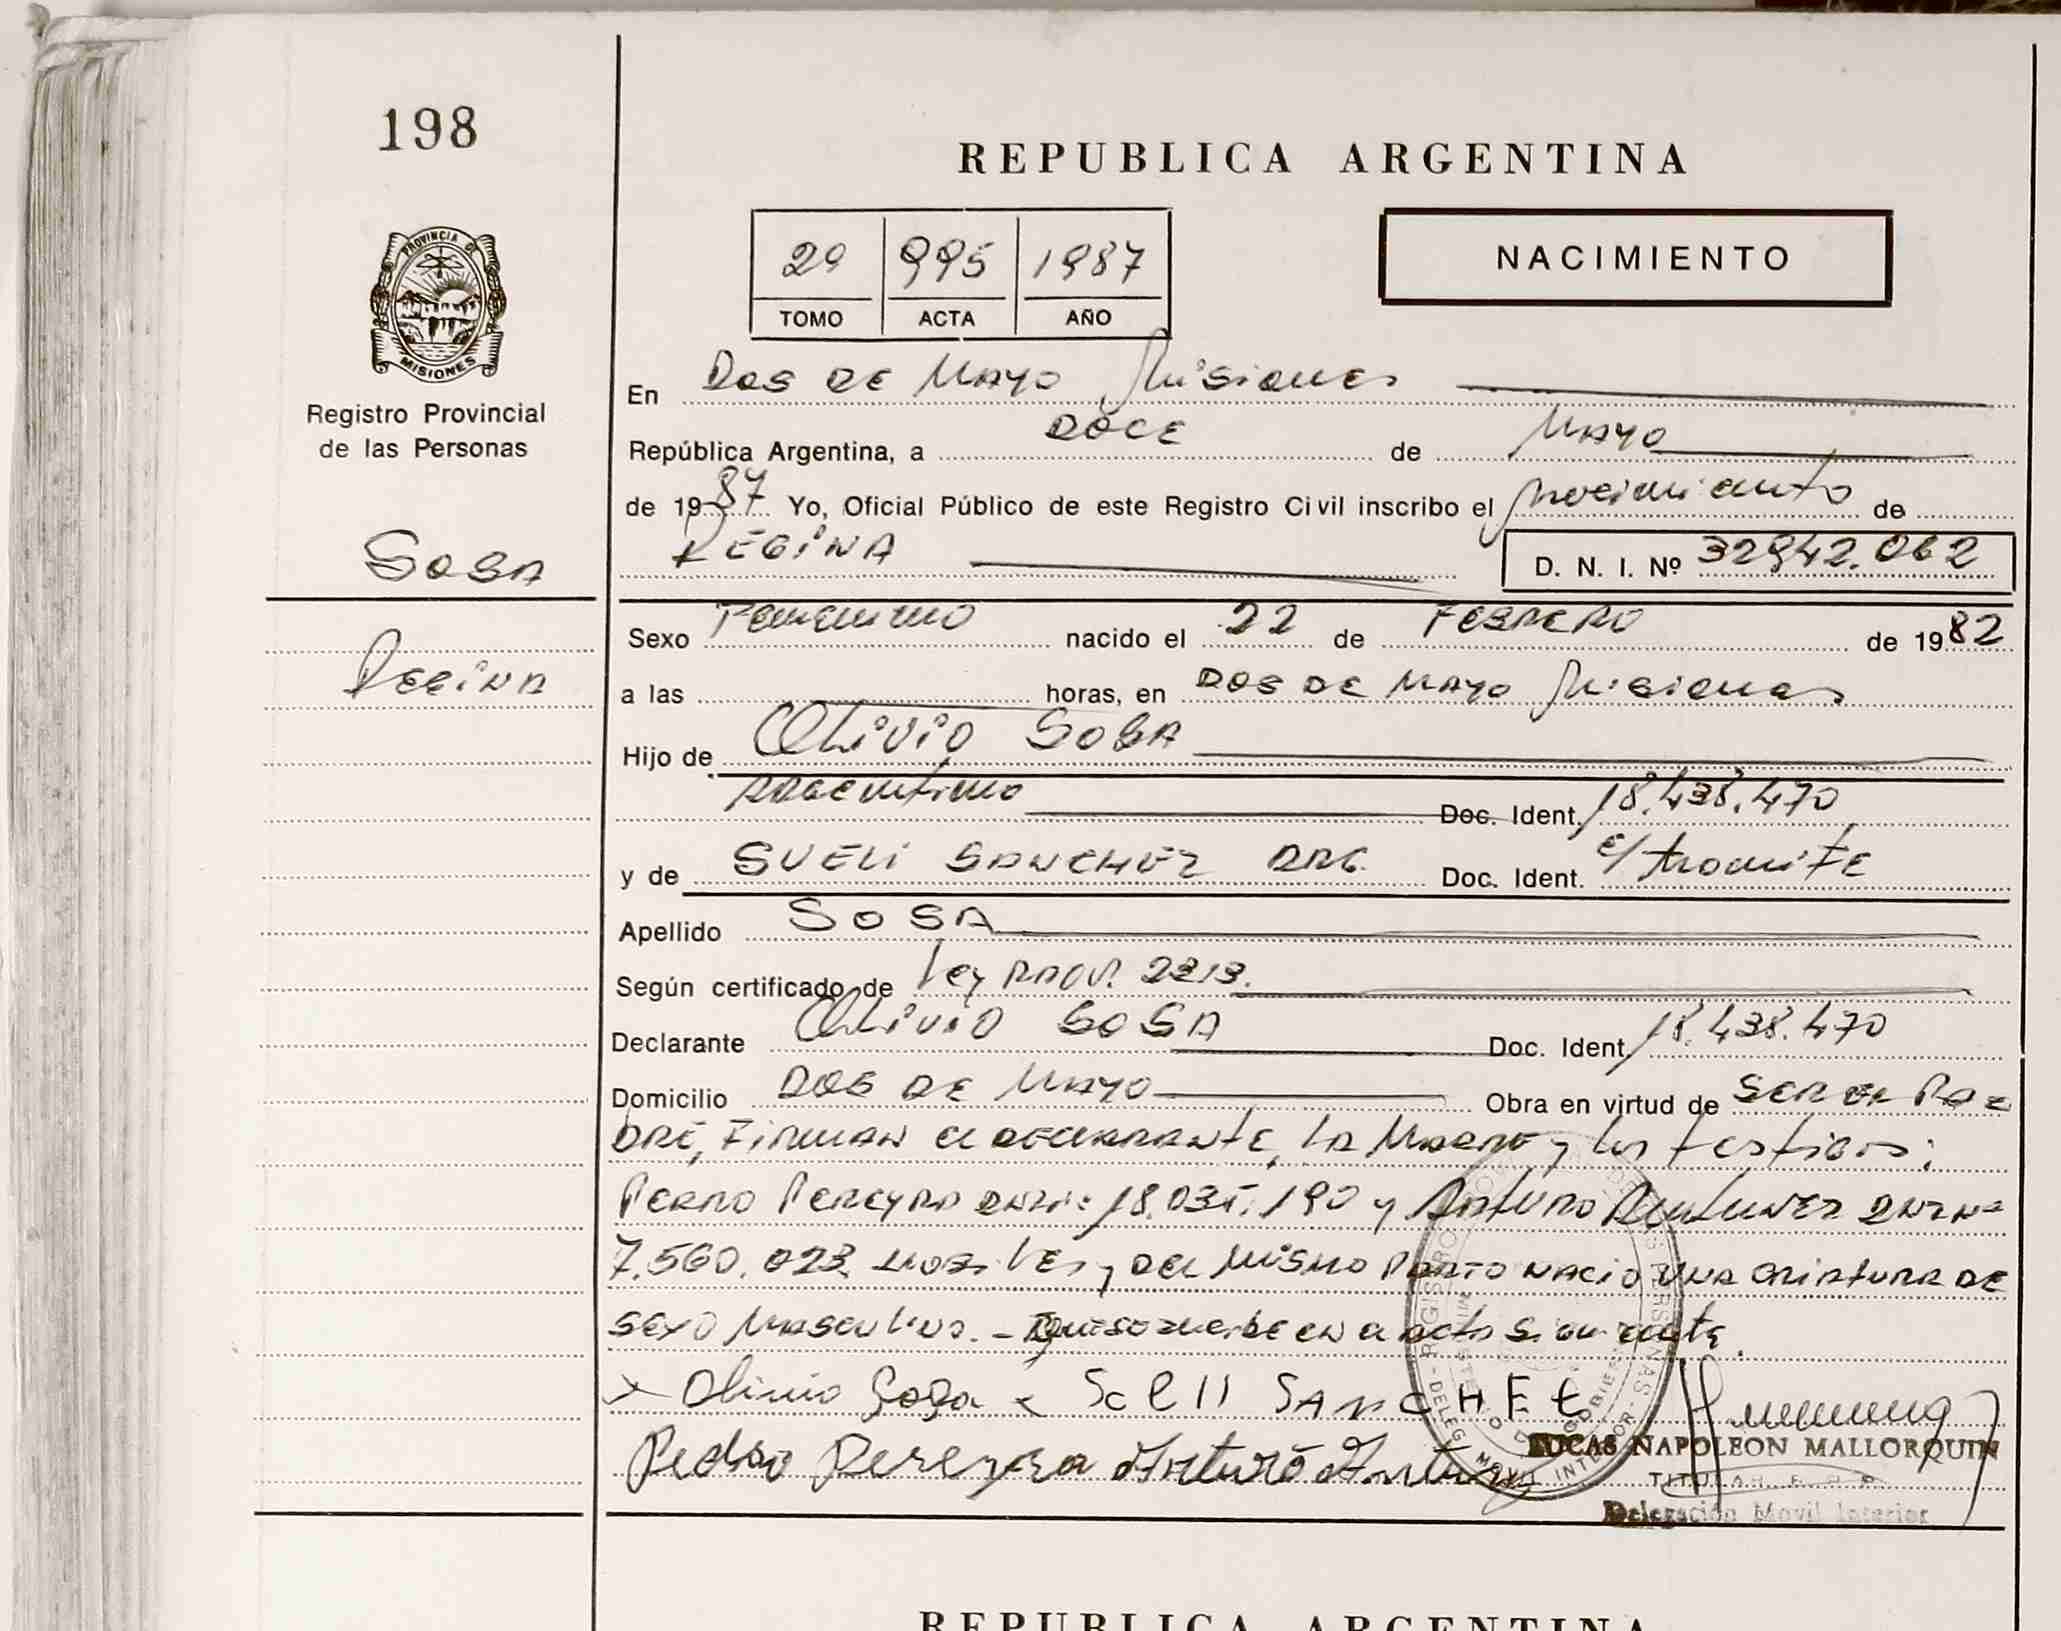 198
REPUBLICA ARGENTINA
29 995 1987
TOMO ACTA AÑO
NACIMIENTO
PROVINCIA DE
MISIONES
Registro Provincial
de las Personas
SOSA
Regina
En Dos de Mayo Misiones
República Argentina, a DOCE de Mayo
de 1987 Yo, Oficial Público de este Registro Civil inscribo el nacimiento de
REGINA D. N. I. Nº 32942.062
Sexo Femenino nacido el 22 de FEBRERO de 1982
a las horas, en Dos de Mayo Misiones
Hijo de Olivio SOSA
Argentino Doc. Ident. 18.438.470
y de SUELI SANCHEZ ARG. Doc. Ident. e/ tramite
Apellido SOSA
Según certificado de Ley Prov. 2213.
Declarante Olivio SOSA Doc. Ident. 18.438.470
Domicilio Dos de Mayo Obra en virtud de ser el Pa=
dre, Firman el declarante, la Madre y los testigos;
Pedro Pereyra 18.035.190 y Arturo Antunez DNI Nº
7.560.023. y del mismo parto nacio una criatura de
sexo Masculino. - que se inscribe en el acta siguiente.
x Olivio Sosa x SANCHEZ
Pedro Pereyra Arturo
LUCAS NAPOLEON MALLORQUIN
TITULAR
Delegación Movil Interior
REPUBLICA ARGENTINA